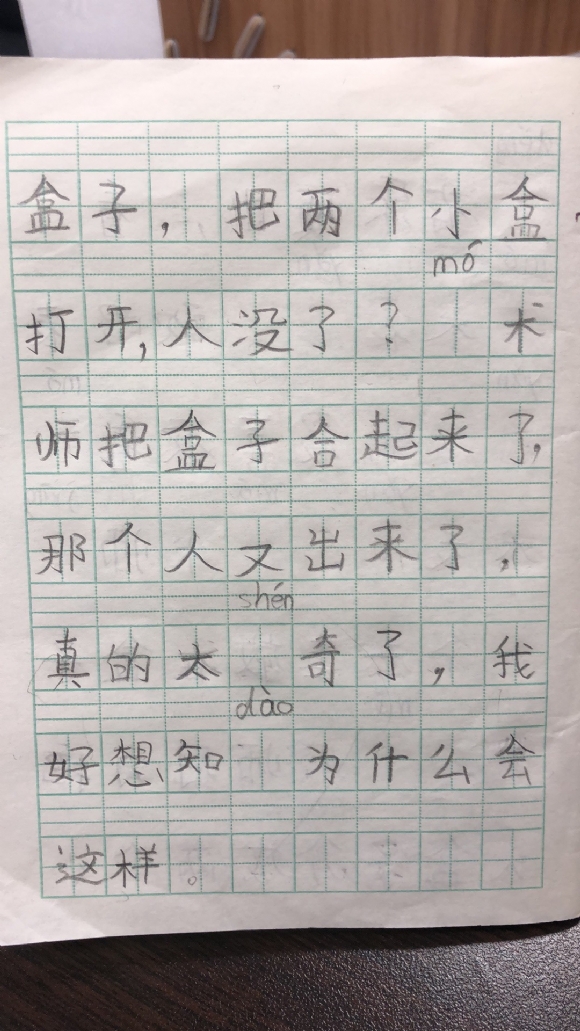 盒子，把两个小盒
mó
打开，人没了？ 术
师把盒子合起来了，
那个人又出来了，
shén
真的太 奇了，我
dào
好想知 为什么会
这样。